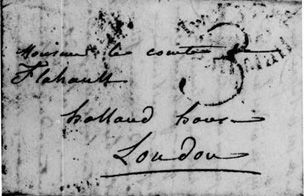 Monsieur le comte
Flahault
3
holland hous
London